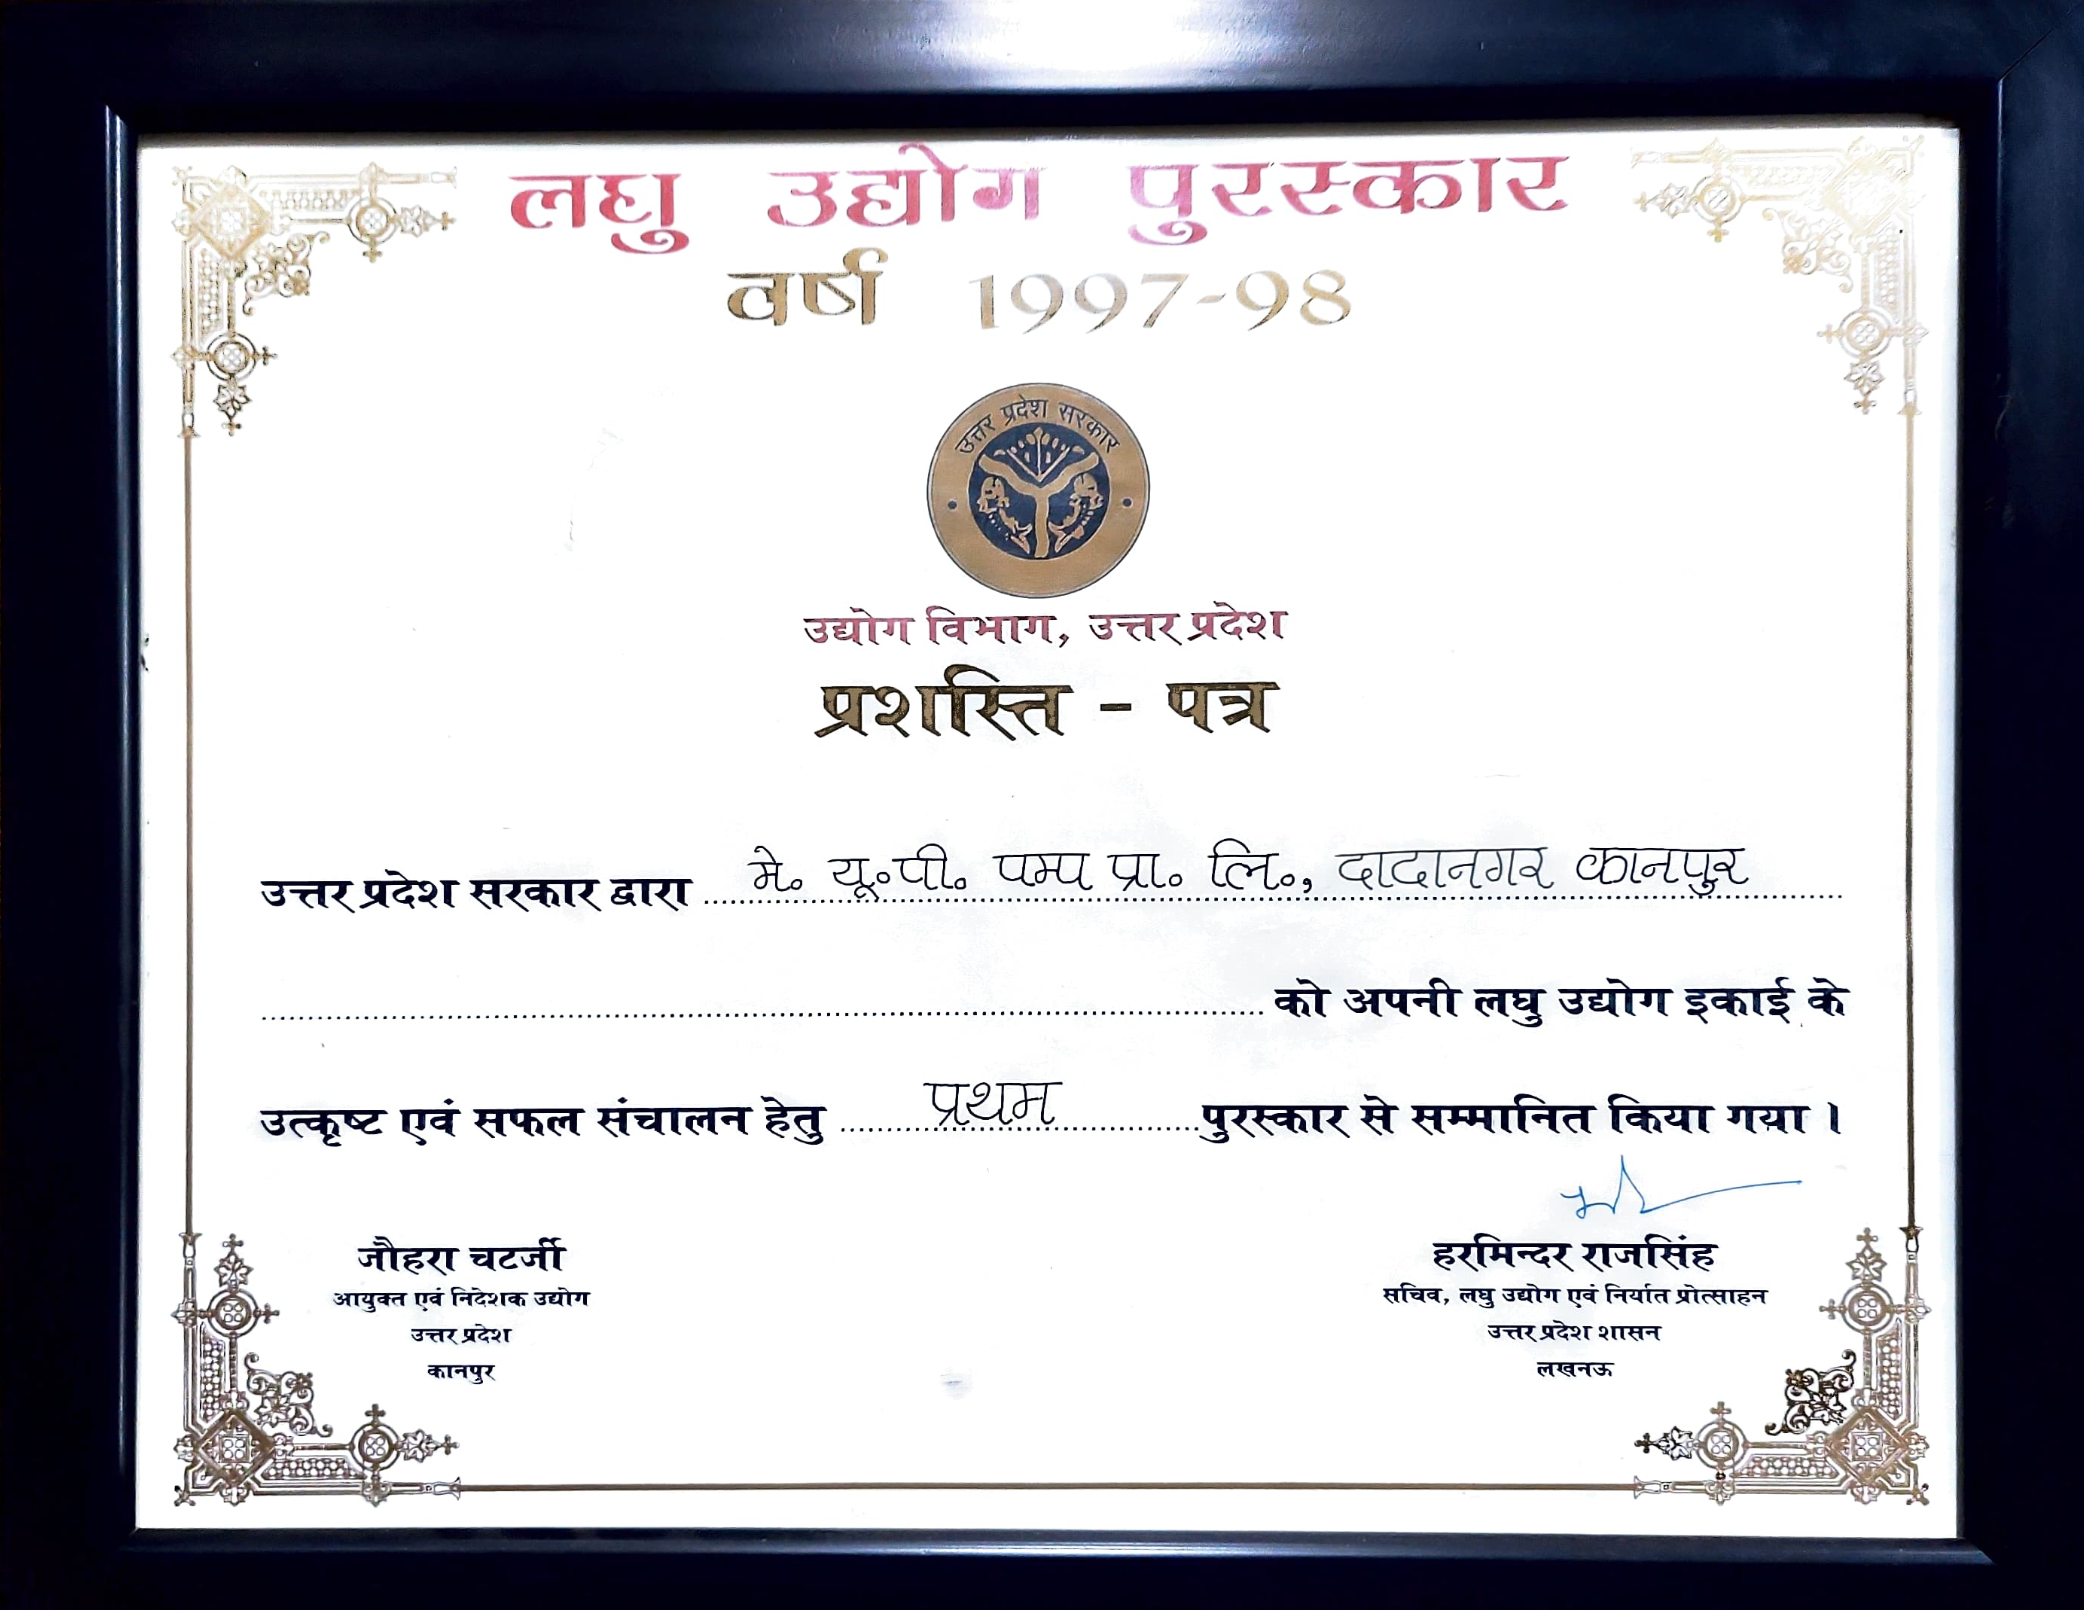 लघु उद्योग पुरस्कार
वर्ष 1997-98
उत्तर प्रदेश सरकार
उद्योग विभाग, उत्तर प्रदेश
प्रशस्ति - पत्र
उत्तर प्रदेश सरकार द्वारा मे. यू.पी. पम्प प्रा. लि., दादानगर कानपुर
को अपनी लघु उद्योग इकाई के
उत्कृष्ट एवं सफल संचालन हेतु प्रथम पुरस्कार से सम्मानित किया गया ।
जौहरा चटर्जी
आयुक्त एवं निदेशक उद्योग
उत्तर प्रदेश
कानपुर
हरमिन्दर राजसिंह
सचिव, लघु उद्योग एवं निर्यात प्रोत्साहन
उत्तर प्रदेश शासन
लखनऊ